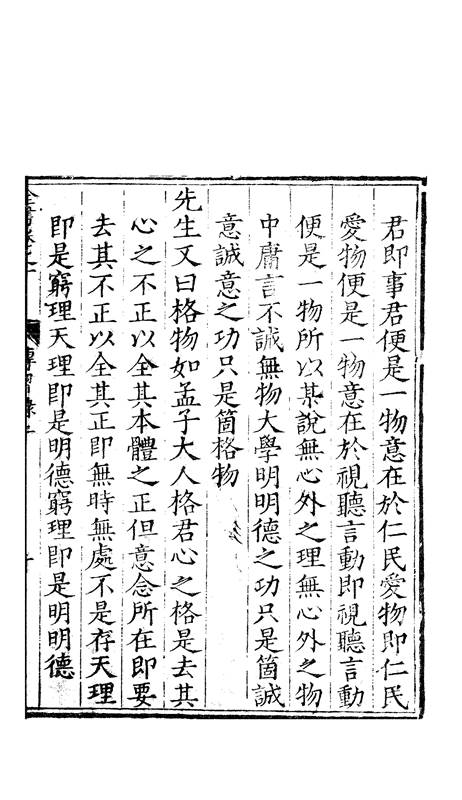 君即事君便是一物意在於仁民愛物即仁民
愛物便是一物意在於視聽言動即視聽言動
便是一物所以某說無心外之理無心外之物
中庸言不誠無物大學明明德之功只是箇誠
意誠意之功只是箇格物
先生又曰格物如孟子大人格君心之格是去其
心之不正以全其本體之正但意念所在即要
去其不正以全其正即無時無處不是存天理
即是窮理天理即是明德窮理即是明明德